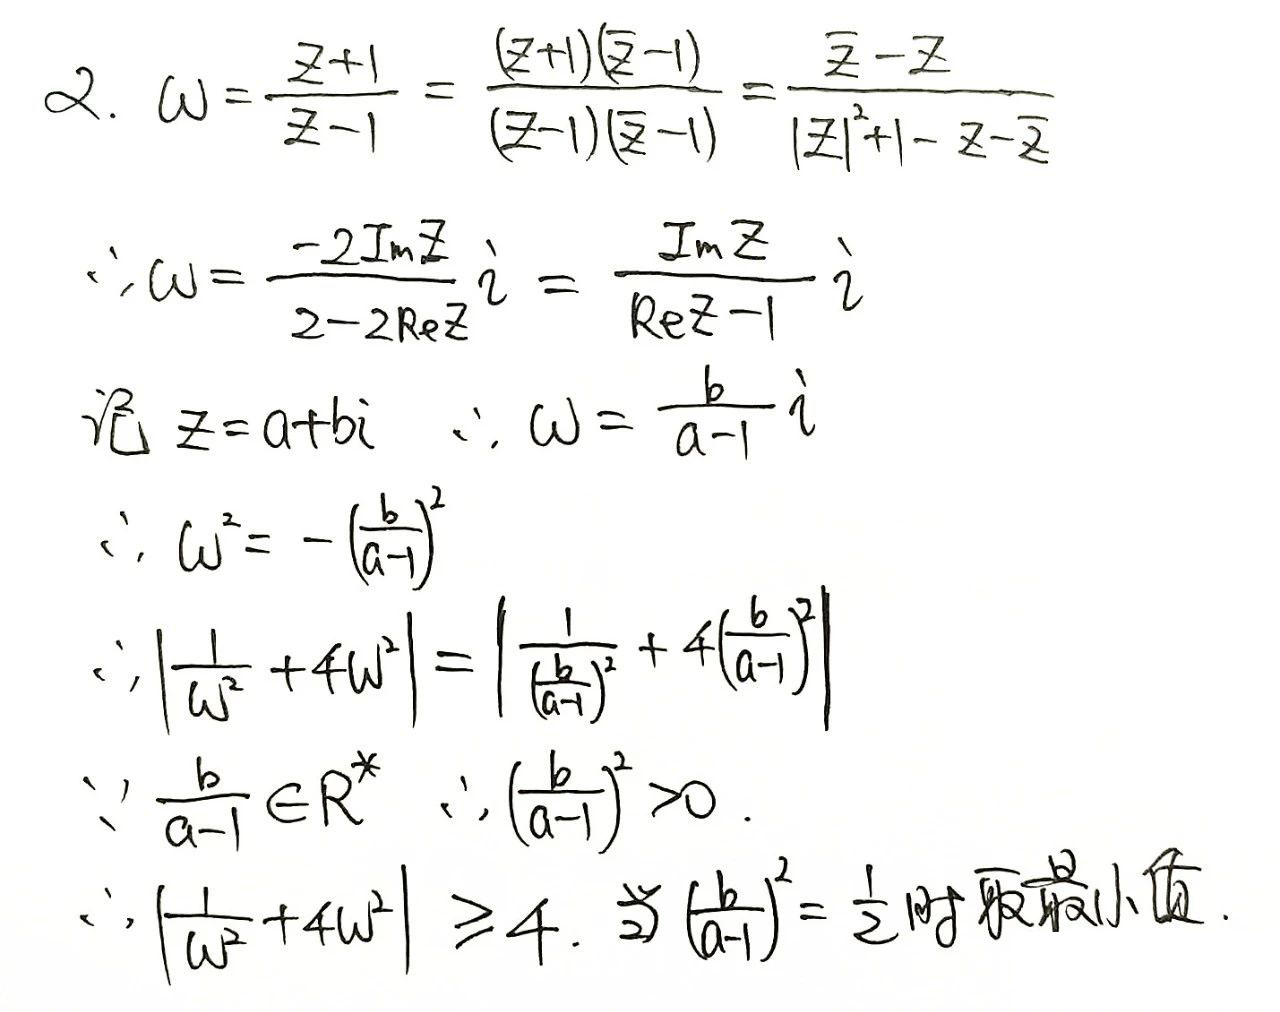 2. ω = \frac{z+1}{z-1} = \frac{(z+1)(\bar{z}-1)}{(z-1)(\bar{z}-1)} = \frac{\bar{z}-z}{|z|^2+1-z-\bar{z}}
∴ ω = \frac{-2Imz}{2-2Rez} i = \frac{Imz}{Rez-1} i
记 z=a+bi ∴ ω = \frac{b}{a-1} i
∴ ω^2 = -(\frac{b}{a-1})^2
∴ |\frac{1}{ω^2}+4ω^2| = |\frac{1}{(\frac{b}{a-1})^2} + 4(\frac{b}{a-1})^2|
∵ \frac{b}{a-1} ∈ R^* ∴ (\frac{b}{a-1})^2 >0.
∴ |\frac{1}{ω^2}+4ω^2| ≥ 4. 当 (\frac{b}{a-1})^2 = \frac{1}{2} 时取最小值.